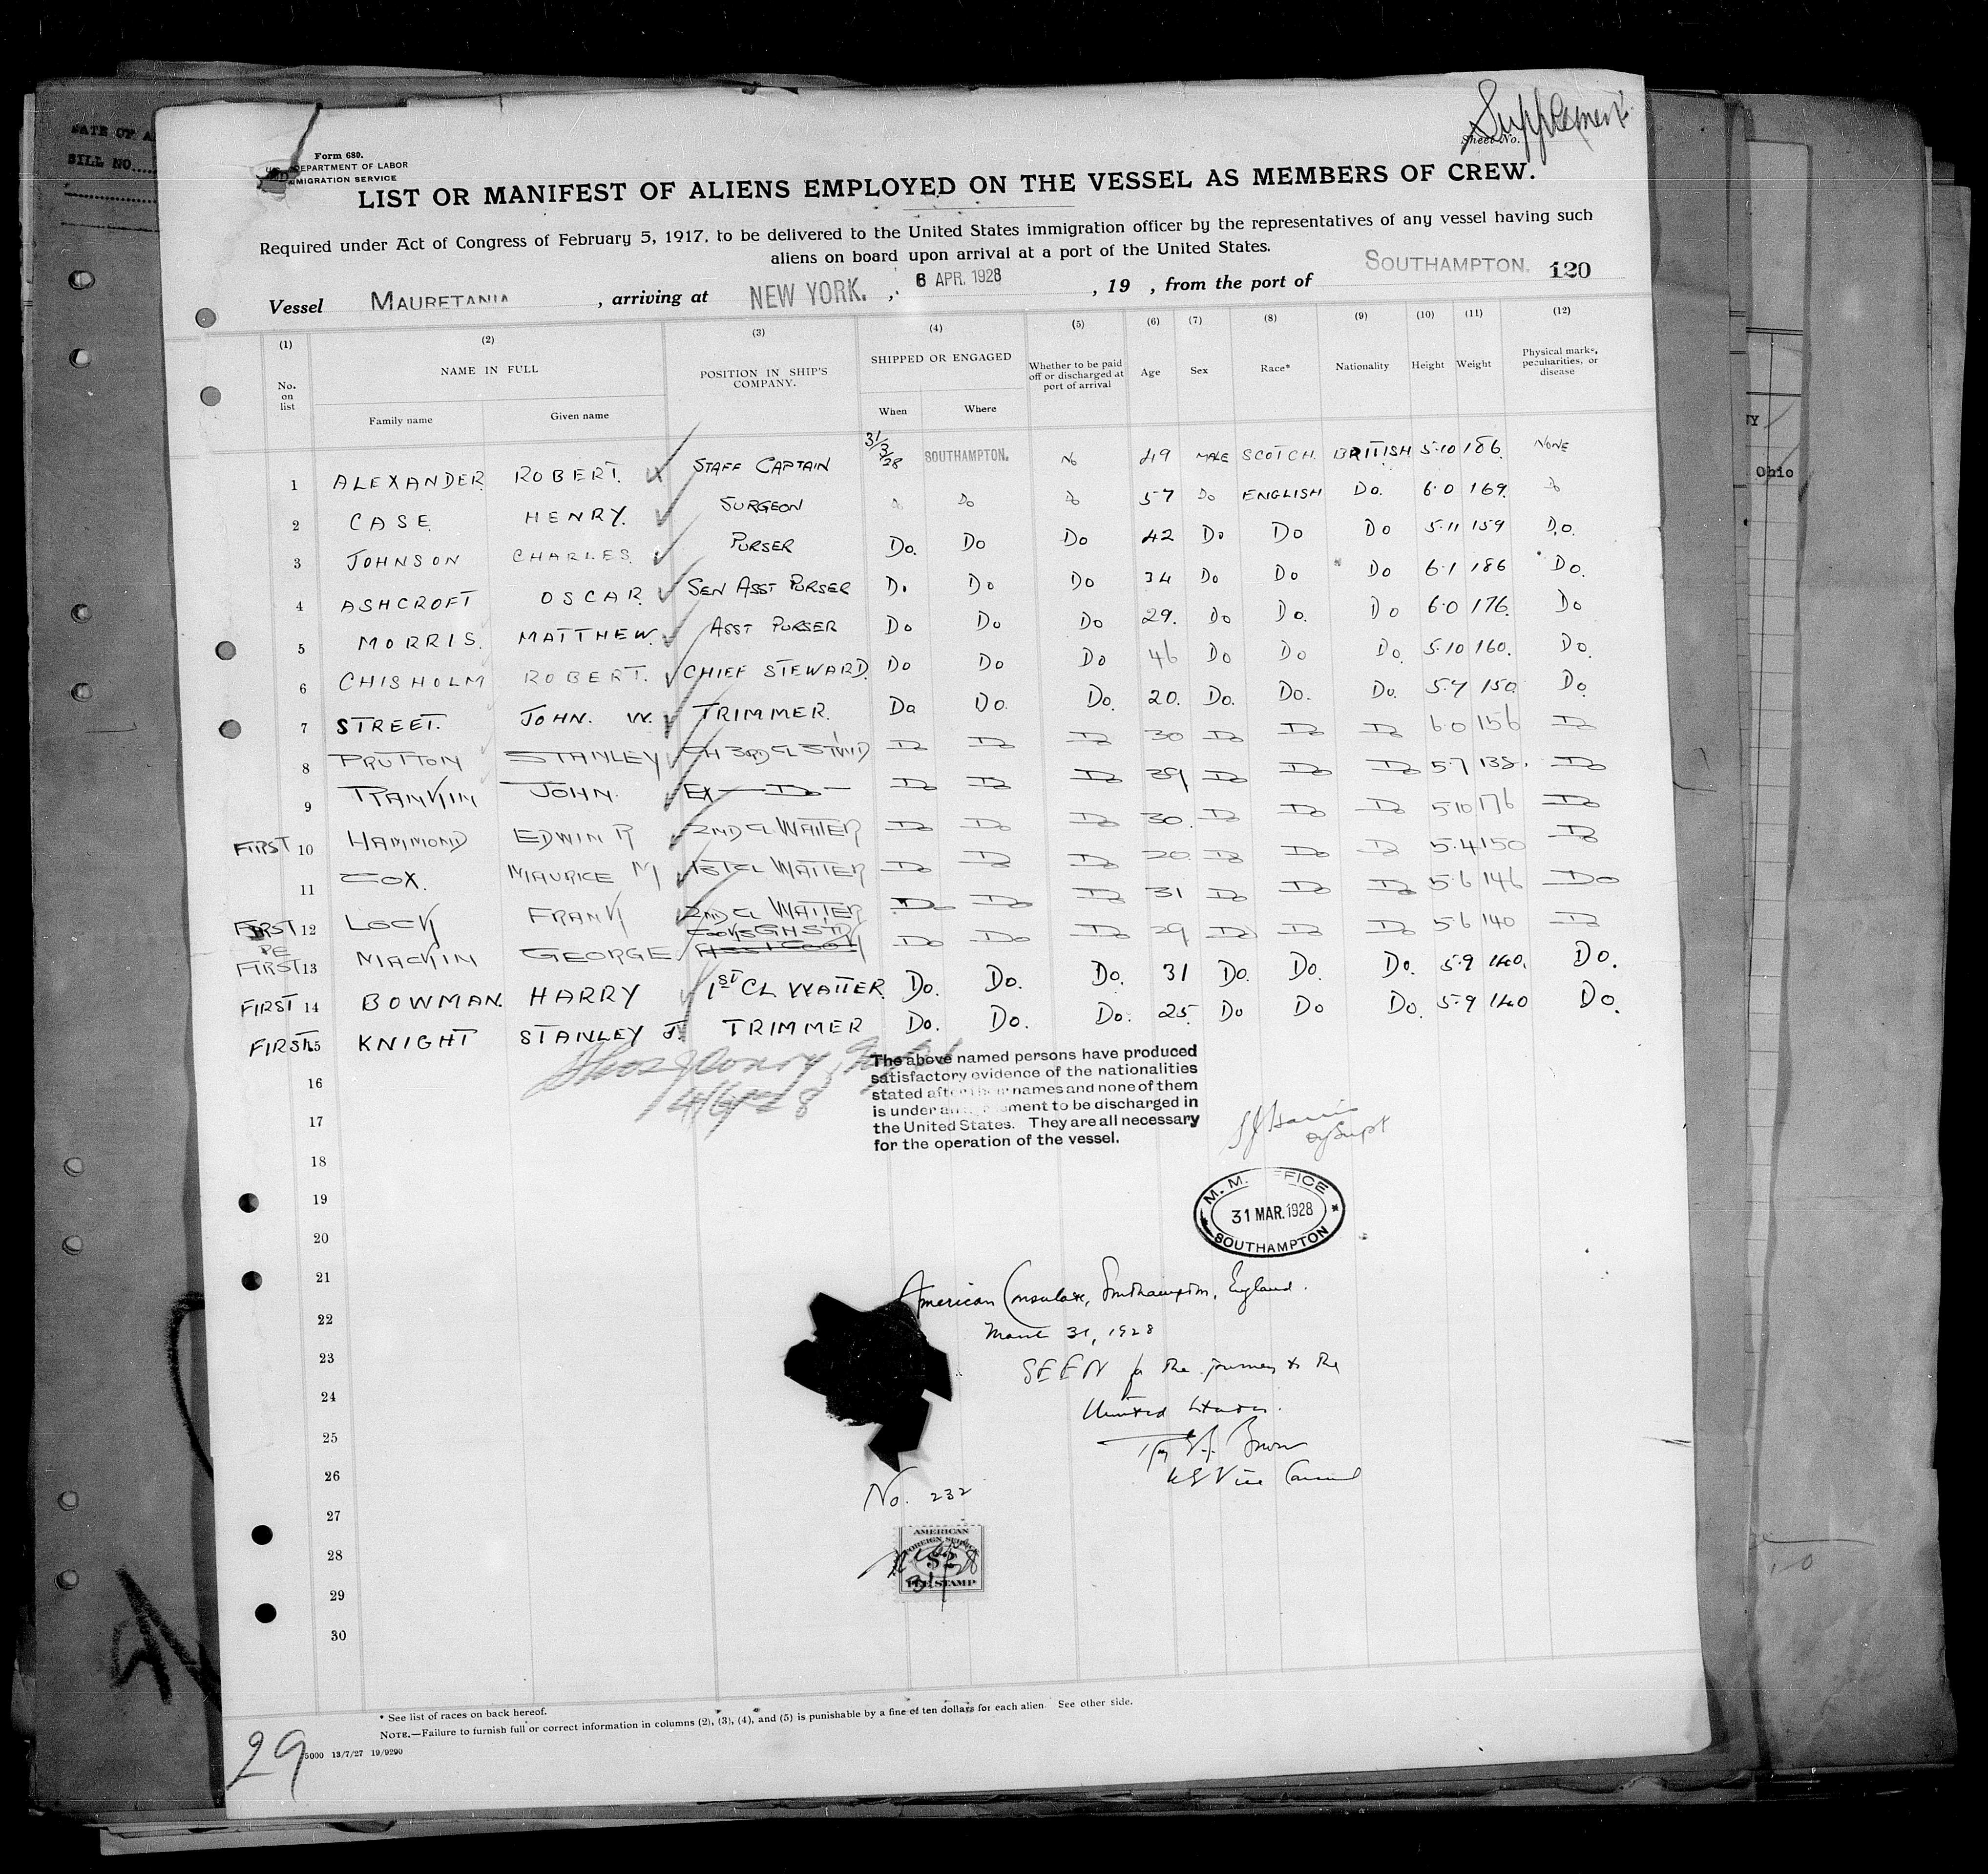 Supplement
Sheet No.
Form 680.
DEPARTMENT OF LABOR
IMMIGRATION SERVICE
LIST OR MANIFEST OF ALIENS EMPLOYED ON THE VESSEL AS MEMBERS OF CREW.
Required under Act of Congress of February 5, 1917, to be delivered to the United States immigration officer by the representatives of any vessel having such
aliens on board upon arrival at a port of the United States.
Vessel MAURETANIA, arriving at NEW YORK. , 6 APR. 1928 , 19 , from the port of SOUTHAMPTON. 120
(1) (2) (3) (4) (5) (6) (7) (8) (9) (10) (11) (12)
No. on list NAME IN FULL POSITION IN SHIP'S COMPANY. SHIPPED OR ENGAGED Whether to be paid off or discharged at port of arrival Age Sex Race* Nationality Height Weight Physical marks, peculiarities, or disease
Family name Given name When Where
1 ALEXANDER ROBERT. STAFF CAPTAIN 31/3/28 SOUTHAMPTON. No 49 MALE SCOTCH BRITISH 5·10 186. NONE
2 CASE HENRY. SURGEON Do Do Do 57 Do ENGLISH Do. 6·0 169. Do
3 JOHNSON CHARLES. PURSER Do. Do Do 42 Do Do Do 5·11 159 Do.
4 ASHCROFT OSCAR. SEN ASST PURSER Do Do Do 34 Do Do Do 6·1 186 Do.
5 MORRIS. MATTHEW. ASST PURSER Do Do Do 29. Do Do. Do 6·0 176. Do
6 CHISHOLM ROBERT. CHIEF STEWARD. Do Do Do 46 Do Do Do. 5·10 160. Do.
7 STREET. JOHN. W. TRIMMER. Do Do. Do. 20. Do. Do. Do. 5·7 150 Do.
8 PRUTTON STANLEY CH 3RD CL STWD Do Do Do 30 Do Do Do 6·0 156 Do
9 RANKIN JOHN. EX — Do — Do Do Do 39 Do Do Do 5·7 138. Do
FIRST 10 HAMMOND EDWIN R 2ND CL WAITER Do Do Do 30. Do Do Do 5·10 176 Do
11 COX. MAURICE M 1ST CL WAITER Do Do Do 20. Do Do Do 5·4 150 Do
FIRST 12 LOCK FRANK 2ND CL WAITER Do Do Do 31 Do Do Do 5·6 146 Do
RE FIRST 13 MACKIN GEORGE COOKS GH STD ASST COOK Do Do Do 29 Do Do Do 5·6 140 Do
FIRST 14 BOWMAN. HARRY 1ST CL WAITER Do. Do. Do. 31 Do. Do. Do. 5·9 140. Do.
FIRST. 15 KNIGHT STANLEY J. TRIMMER Do. Do. Do. 25. Do Do Do. 5·9 140 Do.
16
17
18
19
20
21
22
23
24
25
26
27
28
29
30
The above named persons have produced
satisfactory evidence of the nationalities
stated after their names and none of them
is under ment to be discharged in
the United States. They are all necessary
for the operation of the vessel.
M. M. OFFICE
31 MAR. 1928
SOUTHAMPTON
American Consulate, Southampton, England.
March 31, 1928
SEEN for the journey to the
United States.
Brown
US Vice Consul
No. 232
AMERICAN
FOREIGN SERVICE
$2
FEE STAMP
* See list of races on back hereof.
NOTE.—Failure to furnish full or correct information in columns (2), (3), (4), and (5) is punishable by a fine of ten dollars for each alien. See other side.
5000 13/7/27 19/9290
29
BILL NO.
Ohio